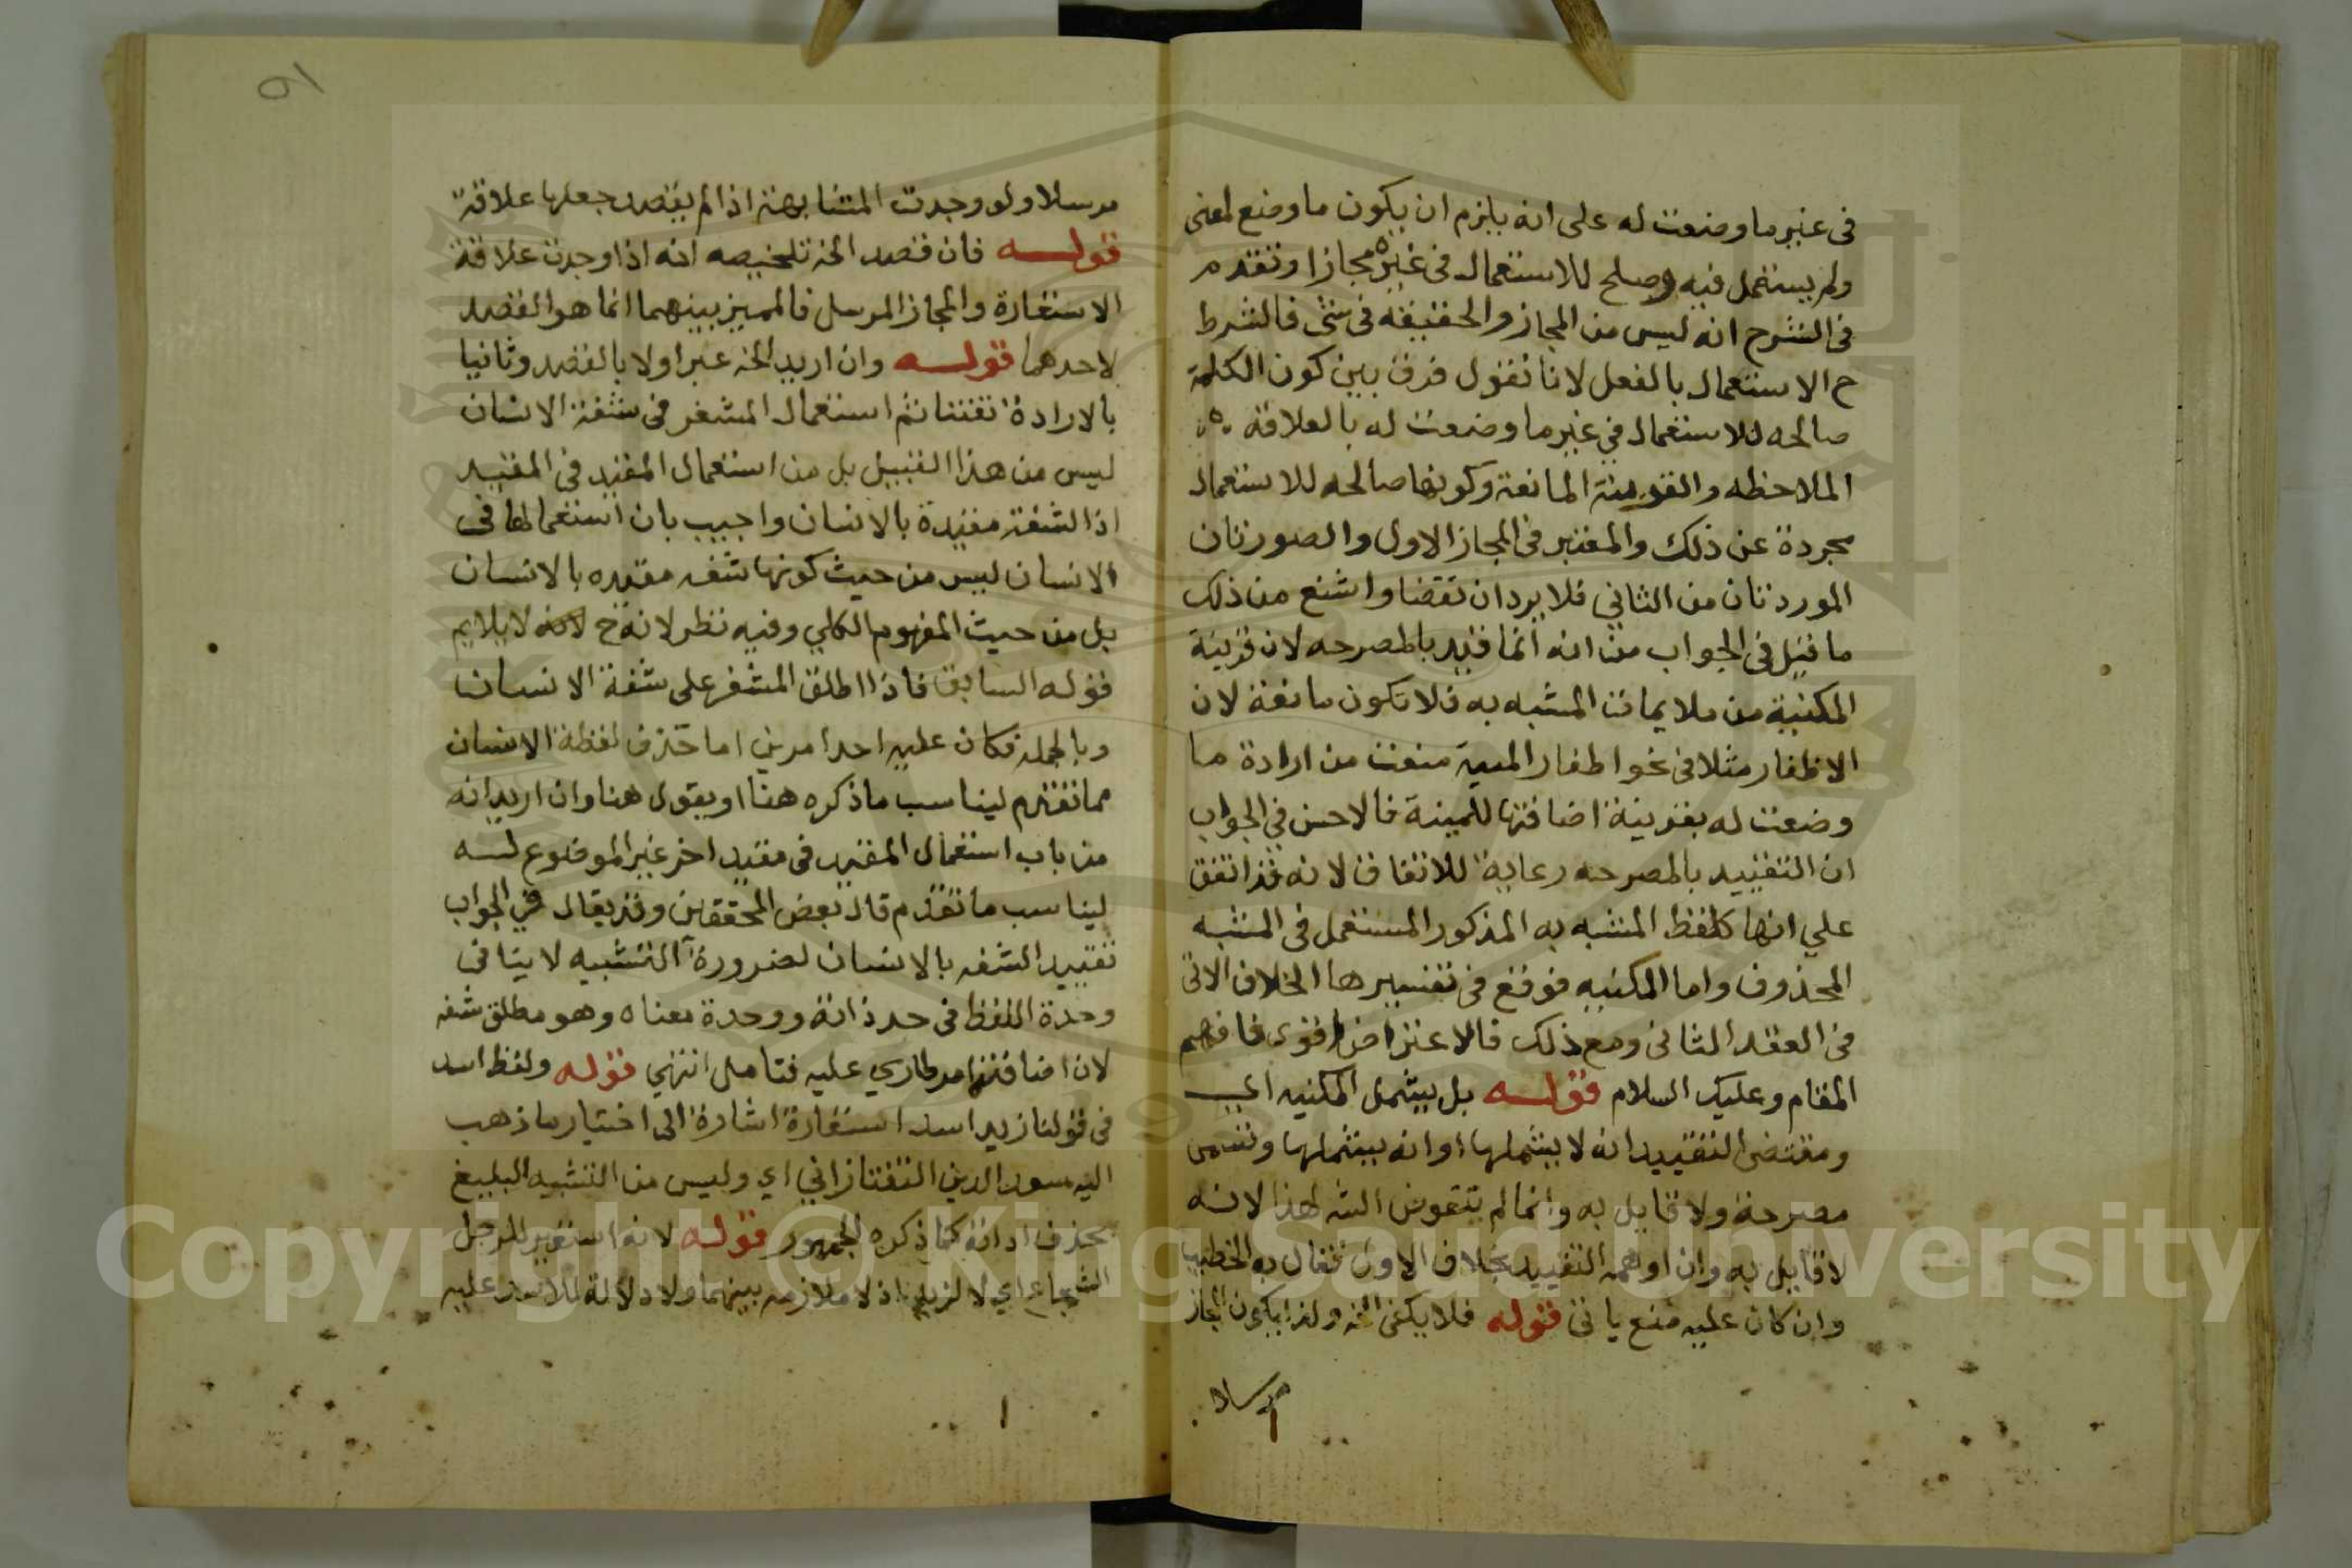 في غير ما وضعت له على انه يلزم ان يكون ما وضع لمعنى
ولم يستعمل فيه وصلح للاستعمال في غيره مجازا وتقدم
في الشرح انه ليس من المجاز والحقيقة في شئ فالشرط
ح الاستعمال بالفعل لانا نقول فرق بين كون الكلمة
صالحه للاستعمال في غير ما وضعت له بالعلاقه
الملاحظه والقرينة المانعة وكونها صالحه للاستعمال
مجردة عن ذلك والمعتبر في المجاز الاول والصورتان
الموردتان من الثاني فلا يردان نقضا واشنع من ذلك
ما قيل في الجواب من انه انما قيد بالمصرحه لان قرينة
المكنية من ملايمات المشبه به فلا تكون مانعة لان
الاظفار مثلا في نحو اظفار المنية منعت من ارادة ما
وضعت له بقرينة اضافتها للمنية فالاحسن في الجواب
ان التقييد بالمصرحه رعاية للاتفاق لانه قد اتفق
علي انها كلفظ المشبه به المذكور المستعمل في المشبه
المحذوف واما المكنيه فوقع في تفسيرها الخلاف الاتي
في العقد الثاني ومع ذلك فالاعتراض اقوى فافهم
المقام وعليك السلام قوله بل يشمل المكنيه اي
ومقتضى التقييد انه لا يشملها او انه يشملها وتسمى
مصرحة ولا قايل به وانما لم يتعوض الشه لهذا لانه
لا قايل به وان اوهمه التقييد بخلاف الاول فقال به الخطيب
وان كان عليه منع ياتي قوله فلا يكفي الخ ولذا يكون المجاز
مرسلا
٩١
مرسلا ولو وجدت المشابهة اذا لم يقصد جعلها علاقة
قوله فان قصد الخ تلخيصه انه اذا وجدت علاقة
الاستعارة والمجاز المرسل فالمميز بينهما انما هو القصد
لاحدهما قوله وان اريد الخ عبر اولا بالقصد وثانيا
بالارادة تفننا ثم استعمال المشفر في شفة الانسان
ليس من هذا القبيل بل من استعمال المقيد في المقيد
اذ الشفة مقيدة بالانسان واجيب بان استعمالها في
الانسان ليس من حيث كونها شفه مقيده بالانسان
بل من حيث المفهوم الكلي وفيه نظر لانه ح لا يلايم
قوله السابق فاذا اطلق المشفر على شفة الانسان
وبالجمله فكان عليه احد امرين اما حذف لفظة الانسان
مما تقدم ليناسب ما ذكره هنا او يقول هنا وان اريد انه
من باب استعمال المقيد في مقيد اخر غير الموضوع له
ليناسب ما تقدم قال بعض المحققين وقد يقال في الجواب
تقييد الشفه بالانسان لضرورة التشبيه لا ينافي
وحدة اللفظ في حد ذاته ووحدة معناه وهو مطلق شفه
لان اضافتها امر طاري عليه فتامل انتهي قوله ولفظ اسد
في قولنا زيد اسد استعارة اشارة الى اختيار ما ذهب
اليه سعد الدين التفتازاني اي وليس من التشبيه البليغ
بحذف اداته كما ذكره الجمهور قوله لانه استعير للرجل
الشجاع اي لا لزيد اذ لا ملازمه بينهما ولا دلالة للاسد عليه
Copyright © King Saud University